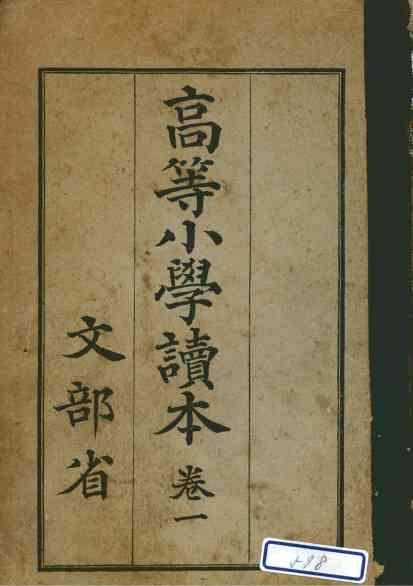 高等小學讀本 卷一
文部省
598